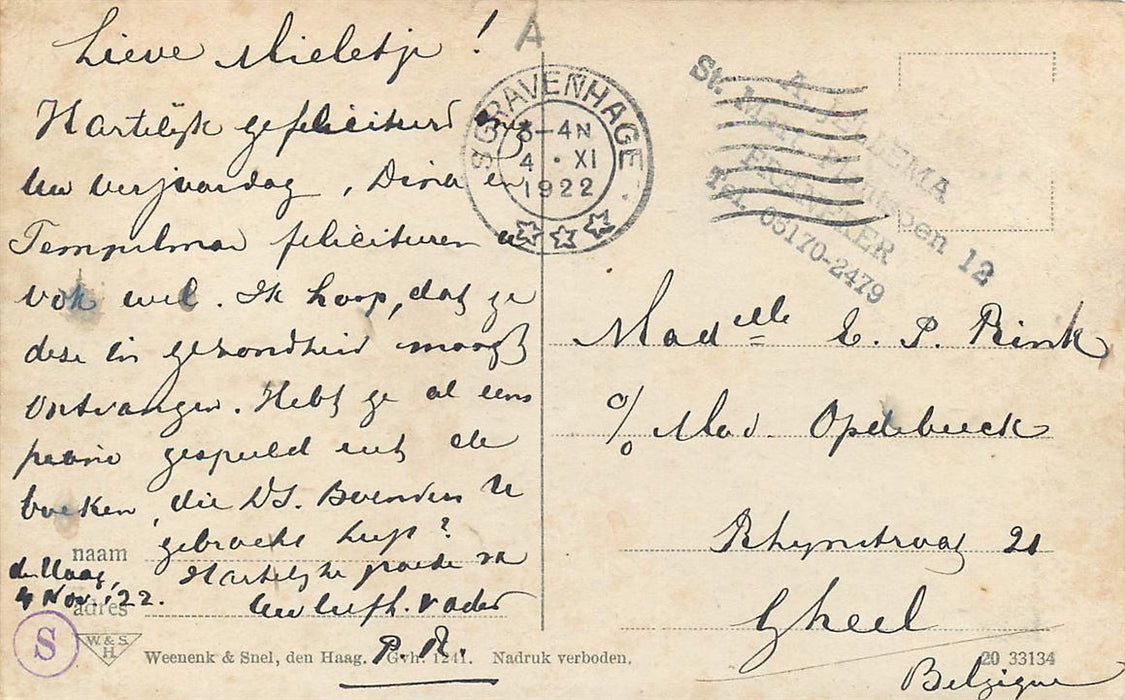 Lieve Mieletje!
Hartelijk gefeliciteerd met
uw verjaardag, Dina en
Tempelman feliciteren u
ook wel. Ik hoop, dat ge
deze in gezondheid moogt
ontvangen. Hebt ge al eens
piano gespeeld uit de
boeken, die DS. Boenders U
gebracht heeft?
Hartelijke groete van
Uw liefh. vader
P. R.
den Haag,
4 Nov. '22.
naam
adres
S
W. & S.
H.
Weenenk & Snel, den Haag. Gvh. 1241. Nadruk verboden.
A
'S GRAVENHAGE
3-4N
4 · XI
1922
St.
FRANEKER
Tel. 05170-2479
12
Madelle E. P. Rink
c/o Mad. Opdebeeck
Rhynstraat 21
Gheel
Belgique
20 33134